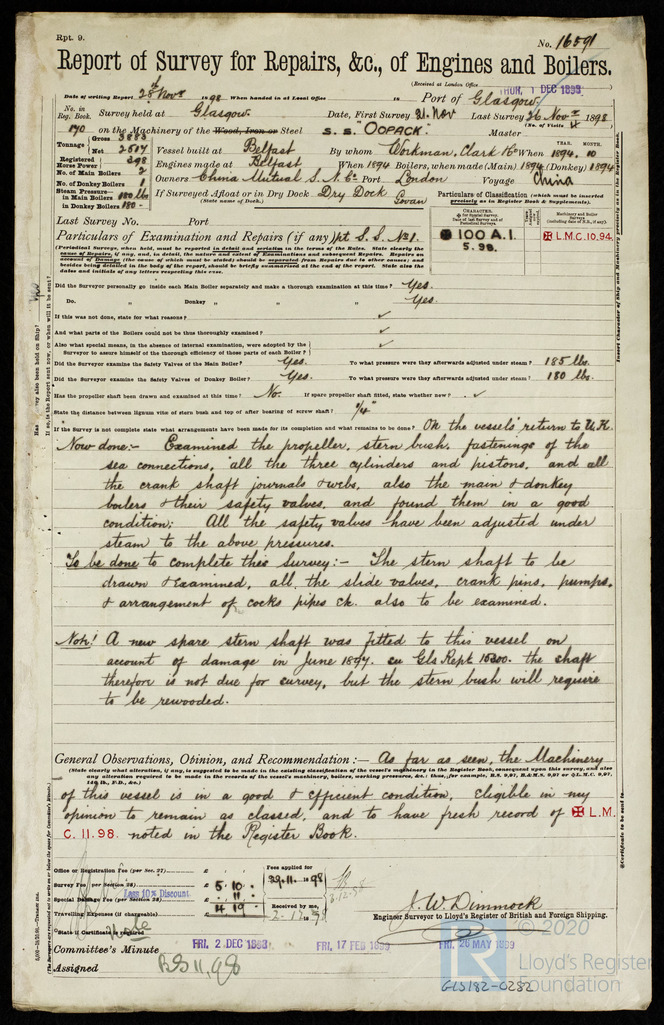 Rpt. 9.
No. 16591
Report of Survey for Repairs, &c., of Engines and Boilers.
(Received at London Office THUR, 1 DEC 1898 )
Date of writing Report 28th Novr 1898 When handed in at Local Office 18 Port of Glasgow
No. in Reg. Book. Survey held at Glasgow Date, First Survey 21. Nov Last Survey 26 Novr 1898
(No. of Visits 4
170 on the Machinery of the Wood, Iron or Steel S.S. "OOPACK." Master
Tonnage Gross 3883 Net 2517
Vessel built at Belfast By whom Workman, Clark & Co When 1894. 10
YEAR. MONTH.
Registered Horse Power 298
Engines made at Belfast When 1894 Boilers, when made (Main) 1894 (Donkey) 1894
No. of Main Boilers 2
No. of Donkey Boilers 1
Owners China Mutual S. N. Co Port London Voyage China
Steam Pressure— in Main Boilers 180 lbs
in Donkey Boilers 180 -
If Surveyed Afloat or in Dry Dock Dry Dock Govan
(State name of Dock.)
Particulars of Classification (which must be inserted precisely as in Register Book & Supplements).
CHARACTER.
Machinery and Boiler Surveys
✠ 100 A.1.
5.98.
✠ L.M.C. 10.94.
Last Survey No. Port
Particulars of Examination and Repairs (if any) pt S.S. No 1.
(Periodical Surveys, when held, must be reported in detail and seriatim in the terms of the Rules. State clearly the cause of Repairs, if any, and, in detail, the nature and extent of Examinations and subsequent Repairs. Repairs on account of Damage (the cause of which must be stated) should be separated from Repairs due to other causes; and besides being detailed in the body of the report, should be briefly summarised at the end of the report. State also the dates and initials of any letters respecting this case.
Did the Surveyor personally go inside each Main Boiler separately and make a thorough examination at this time? Yes.
Do. " Donkey " " " Yes.
If this was not done, state for what reasons? ✓
And what parts of the Boilers could not be thus thoroughly examined? ✓
Also what special means, in the absence of internal examination, were adopted by the Surveyor to assure himself of the thorough efficiency of those parts of each Boiler? ✓
Did the Surveyor examine the Safety Valves of the Main Boiler? Yes. To what pressure were they afterwards adjusted under steam? 185 lbs.
Did the Surveyor examine the Safety Valves of Donkey Boiler? Yes. To what pressure were they afterwards adjusted under steam? 180 lbs.
Has the propeller shaft been drawn and examined at this time? No. If spare propeller shaft fitted, state whether new? ✓
State the distance between lignum vitæ of stern bush and top of after bearing of screw shaft?
If the Survey is not complete state what arrangements have been made for its completion and what remains to be done? On the vessels' return to U.K.
Now done:- Examined the propeller, stern bush, fastenings of the
sea connections, all the three cylinders and pistons, and all
the crank shaft journals & webs, also the main & donkey
boilers & their safety valves, and found them in a good
condition: All the safety valves have been adjusted under
steam to the above pressures.
To be done to complete this survey:- The stern shaft to be
drawn & examined, all the slide valves, crank pins, pumps,
& arrangement of cocks pipes &c. also to be examined.
Note! A new spare stern shaft was fitted to this vessel on
account of damage in June 1897. see Gls Rept. 15300. the shaft
therefore is not due for survey, but the stern bush will require
to be rewooded.
General Observations, Opinion, and Recommendation:— As far as seen, the Machinery
(State clearly what alteration, if any, is suggested to be made in the existing classification of the vessel's machinery in the Register Book, consequent upon this survey, and also any alteration required to be made in the records of the vessel's machinery, boilers, working pressures, &c.: thus, for example, B.S. 9,97, B.&M.S. 9,97 or ✠L.M.C. 9,97, 140 lb., F.D., &c.)
of this vessel is in a good & efficient condition, eligible in my
opinion to remain as classed, and to have fresh record of ✠ L.M.
C. 11.98. noted in the Register Book.
Office or Registration Fee (per Sec. 27).... £
Survey Fee (per Section 28)......... £ 5 : 10 :
Less 10% Discount
Special Damage Fee (per Section 28) £ : 11 :
Travelling Expenses (if chargeable) £ 4 : 19 :
Fees applied for
29.11.1898
Received by me,
2.12.1898
J. W. Dimmock
Engineer Surveyor to Lloyd's Register of British and Foreign Shipping.
State if Certificate is required
Committee's Minute
FRI, 2 DEC 1898
FRI, 17 FEB 1899
FRI, 26 MAY 1899
Assigned BS 11,98
© 2020
Lloyd's Register
Foundation
GLS182-0282
Insert Character of Ship and Machinery precisely as in the Register Book.